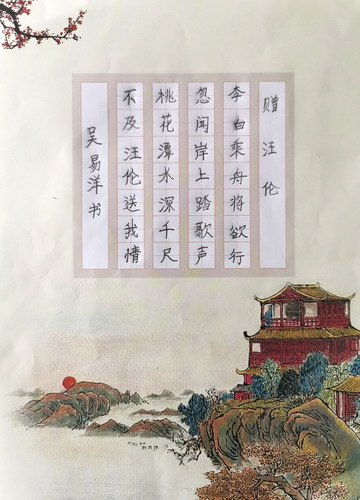 赠汪伦
李白乘舟将欲行
忽闻岸上踏歌声
桃花潭水深千尺
不及汪伦送我情
吴易洋书